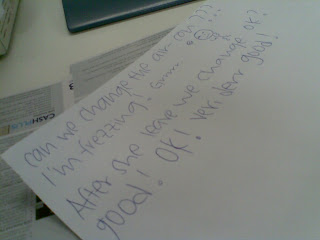 can we change the air-con???
I'm frezzing! Grrrrr..
After she leave we change ok?
good! OK! veri derr good!
CASH